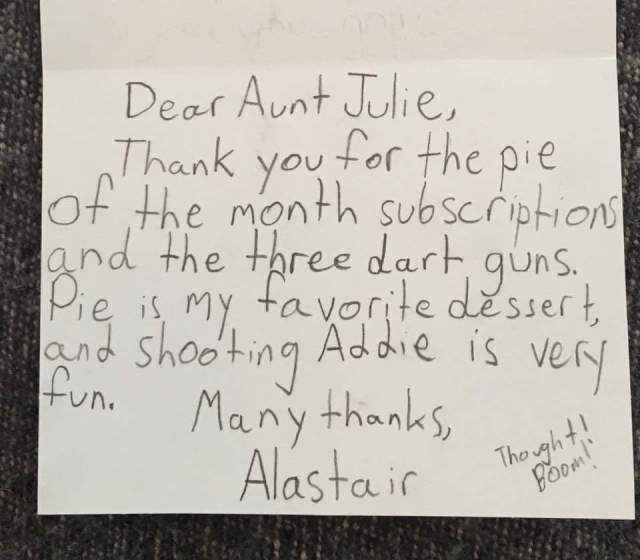 Dear Aunt Julie,
Thank you for the pie
of the month subscriptions
and the three dart guns.
Pie is my favorite dessert,
and shooting Addie is very
fun.
Many thanks,
Alastair
Thought!
Boom!